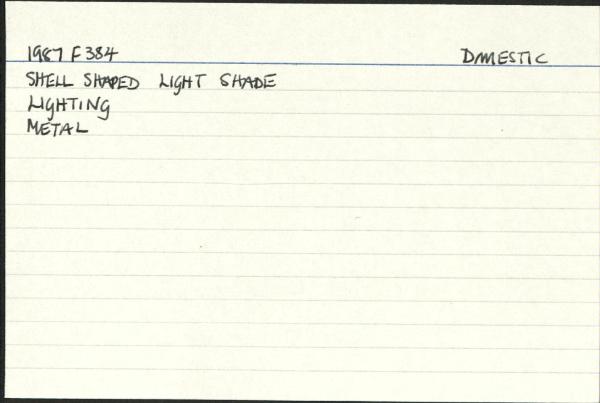 1987 F 384 DOMESTIC
SHELL SHAPED LIGHT SHADE
LIGHTING
METAL